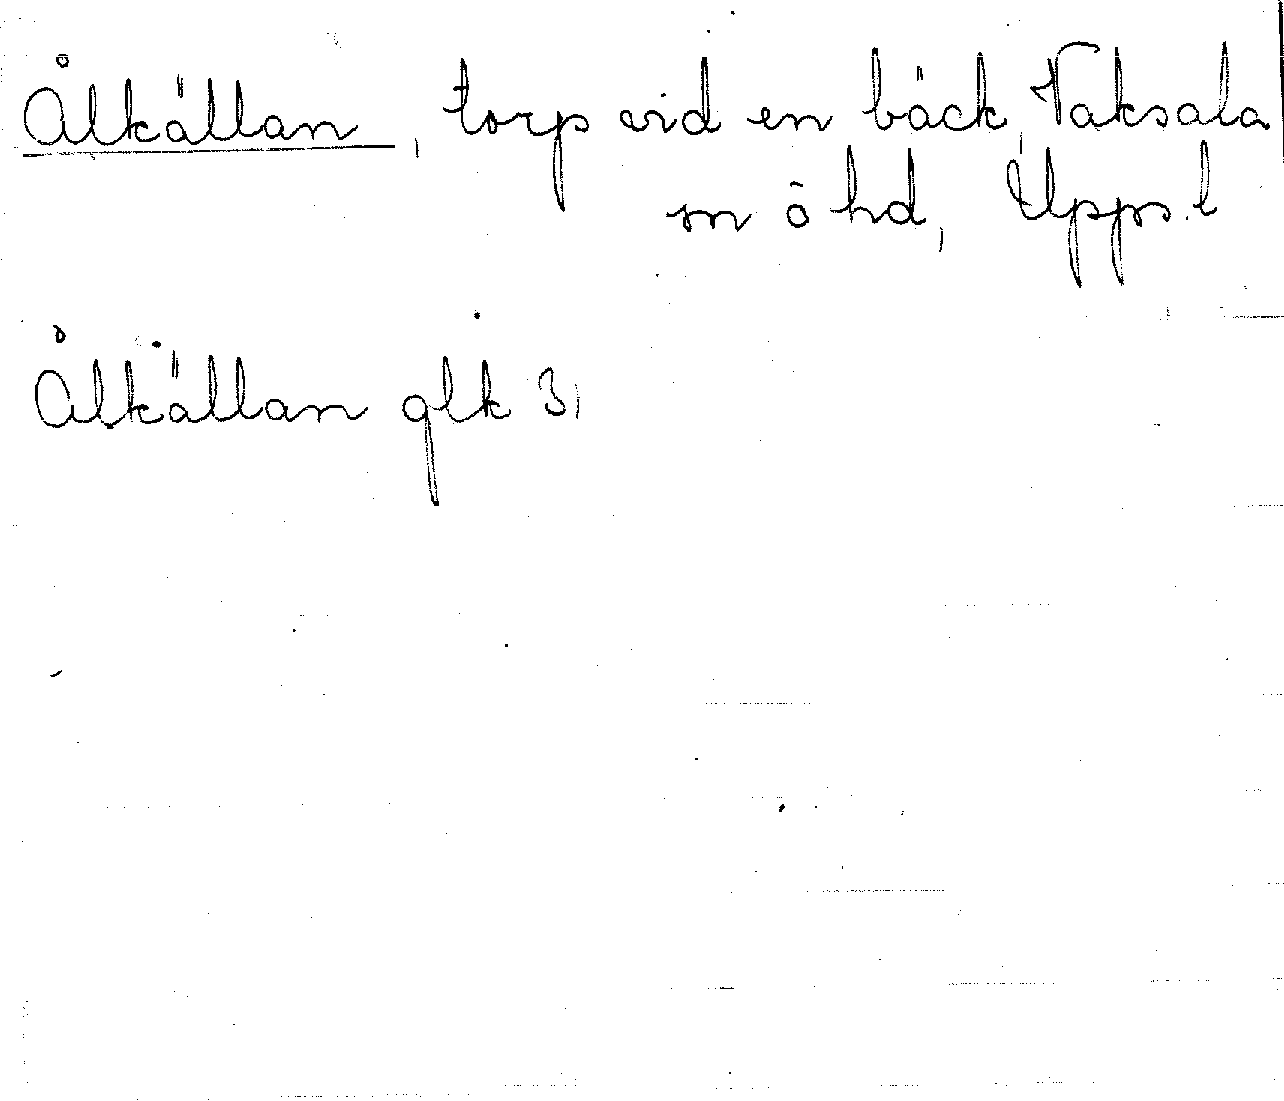 Ålkällan, torp vid en bäck, Vaksala
sn o hd, Upps. l
Ålkällan glk 31